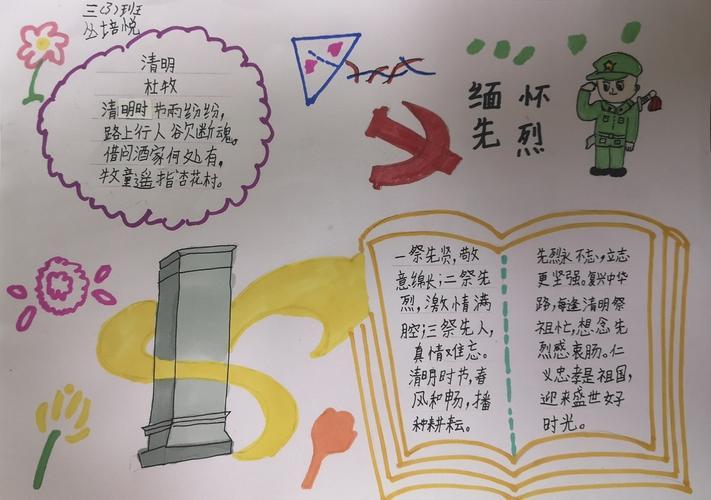 三(3)班
丛培悦
清明
杜牧
清明时节雨纷纷,
路上行人欲断魂。
借问酒家何处有,
牧童遥指杏花村。
缅怀
先烈
一祭先贤,敬
意绵长;二祭先
烈,激情满
腔;三祭先人,
真情难忘。
清明时节,春
风和畅,播
种耕耘。
先烈永不忘,立志
更坚强。复兴中华
路,每逢清明祭
祖忙,想念先
烈感衷肠。仁
义忠孝是祖国,
迎来盛世好
时光。